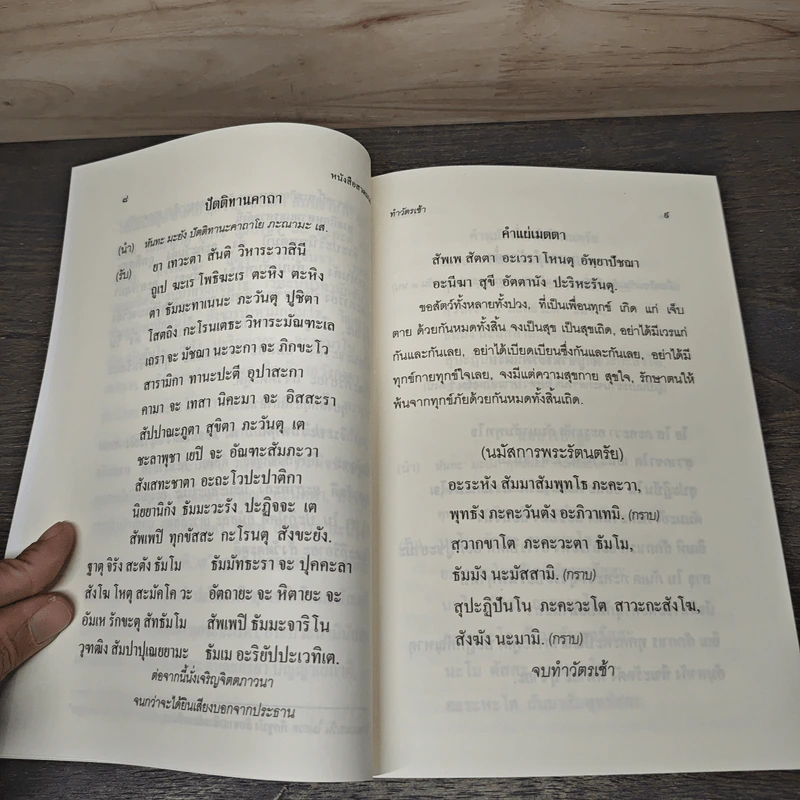 ๘
หนังสือสวดมนต์
ปัตติทานคาถา
(นำ) หันทะ มะยัง ปัตติทานะคาถาโย ภะณามะ เส.
(รับ) ยา เทวะตา สันติ วิหาระวาสินี
ถูเป ฆะเร โพธิฆะเร ตะหิง ตะหิง
ตา ธัมมะทาเนนะ ภะวันตุ ปูชิตา
โสตถิง กะโรนเตธะ วิหาระมัณฑะเล
เถรา จะ มัชฌา นะวะกา จะ ภิกขะโว
สารามิกา ทานะปะตี อุปาสะกา
คามา จะ เทสา นิคะมา จะ อิสสะรา
สัปปาณะภูตา สุขิตา ภะวันตุ เต
ชะลาพุชา เยปิ จะ อัณฑะสัมภะวา
สังเสทะชาตา อะถะโวปะปาติกา
นิยยานิกัง ธัมมะวะรัง ปะฏิจจะ เต
สัพเพปิ ทุกขัสสะ กะโรนตุ สังขะยัง.
ฐาตุ จิรัง สะตัง ธัมโม ธัมมัทธะรา จะ ปุคคะลา
สังโฆ โหตุ สะมัคโค วะ อัตถายะ จะ หิตายะ จะ
อัมเห รักขะตุ สัทธัมโม สัพเพปิ ธัมมะจาริโน
วุฑฒิง สัมปาปุเณยยามะ ธัมเม อะริยัปปะเวทิเต.
ต่อจากนี้นั่งเจริญจิตตภาวนา
จนกว่าจะได้ยินเสียงบอกจากประธาน
ทำวัตรเช้า
๙
คำแผ่เมตตา
สัพเพ สัตตา อะเวรา โหนตุ อัพฺยาปัชฌา
อะนีฆา สุขี อัตตานัง ปะริหะรันตุ.
ขอสัตว์ทั้งหลายทั้งปวง, ที่เป็นเพื่อนทุกข์ เกิด แก่ เจ็บ
ตาย ด้วยกันหมดทั้งสิ้น จงเป็นสุข เป็นสุขเถิด, อย่าได้มีเวรแก่
กันและกันเลย, อย่าได้เบียดเบียนซึ่งกันและกันเลย, อย่าได้มี
ทุกข์กายทุกข์ใจเลย, จงมีแต่ความสุขกาย สุขใจ, รักษาตนให้
พ้นจากทุกข์ภัยด้วยกันหมดทั้งสิ้นเถิด.
(นมัสการพระรัตนตรัย)
อะระหัง สัมมาสัมพุทโธ ภะคะวา,
พุทธัง ภะคะวันตัง อะภิวาเทมิ. (กราบ)
สฺวากขาโต ภะคะวะตา ธัมโม,
ธัมมัง นะมัสสามิ. (กราบ)
สุปะฏิปันโน ภะคะวะโต สาวะกะสังโฆ,
สังฆัง นะมามิ. (กราบ)
จบทำวัตรเช้า